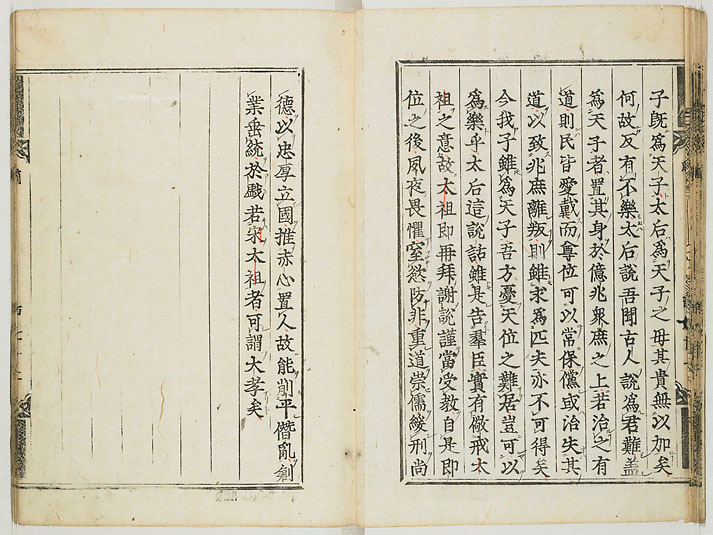 子既爲天子太后爲天子之母其貴無以加矣
何故反有不樂太后說吾聞古人說爲君難盖
爲天子者置其身於億兆衆庶之上若治之有
道則民皆愛戴而尊位可以常保儻或治失其
道以致兆庶離叛則雖求爲匹夫亦不可得矣
今我子雖爲天子吾方憂天位之難居豈可以
爲樂乎太后這說話雖是告羣臣實有儆戒太
祖之意故太祖即再拜謝說謹當受教自是即
位之後夙夜畏懼窒慾防非重道崇儒緩刑尚
德以忠厚立國推赤心置人故能削平僭亂創
業垂統於戲若宋太祖者可謂大孝矣